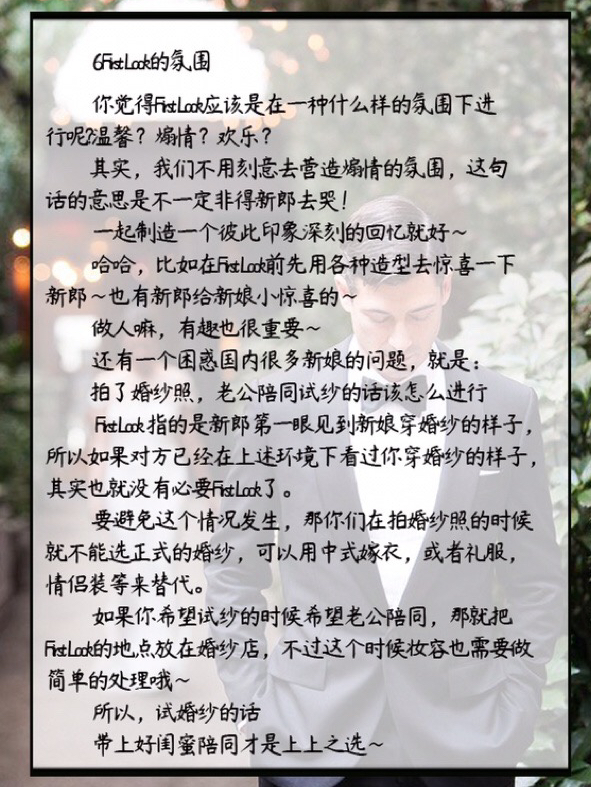 6.First Look的氛围
你觉得First Look应该是在一种什么样的氛围下进
行呢?温馨？煽情？欢乐？
其实，我们不用刻意去营造煽情的氛围，这句
话的意思是不一定非得新郎去哭！
一起制造一个彼此印象深刻的回忆就好~
哈哈，比如在First Look前先用各种造型去惊喜一下
新郎~也有新郎给新娘小惊喜的~
做人嘛，有趣也很重要~
还有一个困惑国内很多新娘的问题，就是：
拍了婚纱照，老公陪同试纱的话该怎么进行
First Look 指的是新郎第一眼见到新娘穿婚纱的样子，
所以如果对方已经在上述环境下看过你穿婚纱的样子，
其实也就没有必要First Look了。
要避免这个情况发生，那你们在拍婚纱照的时候
就不能选正式的婚纱，可以用中式嫁衣，或者礼服，
情侣装等来替代。
如果你希望试纱的时候希望老公陪同，那就把
First Look的地点放在婚纱店，不过这个时候妆容也需要做
简单的处理哦~
所以，试婚纱的话
带上好闺蜜陪同才是上上之选~